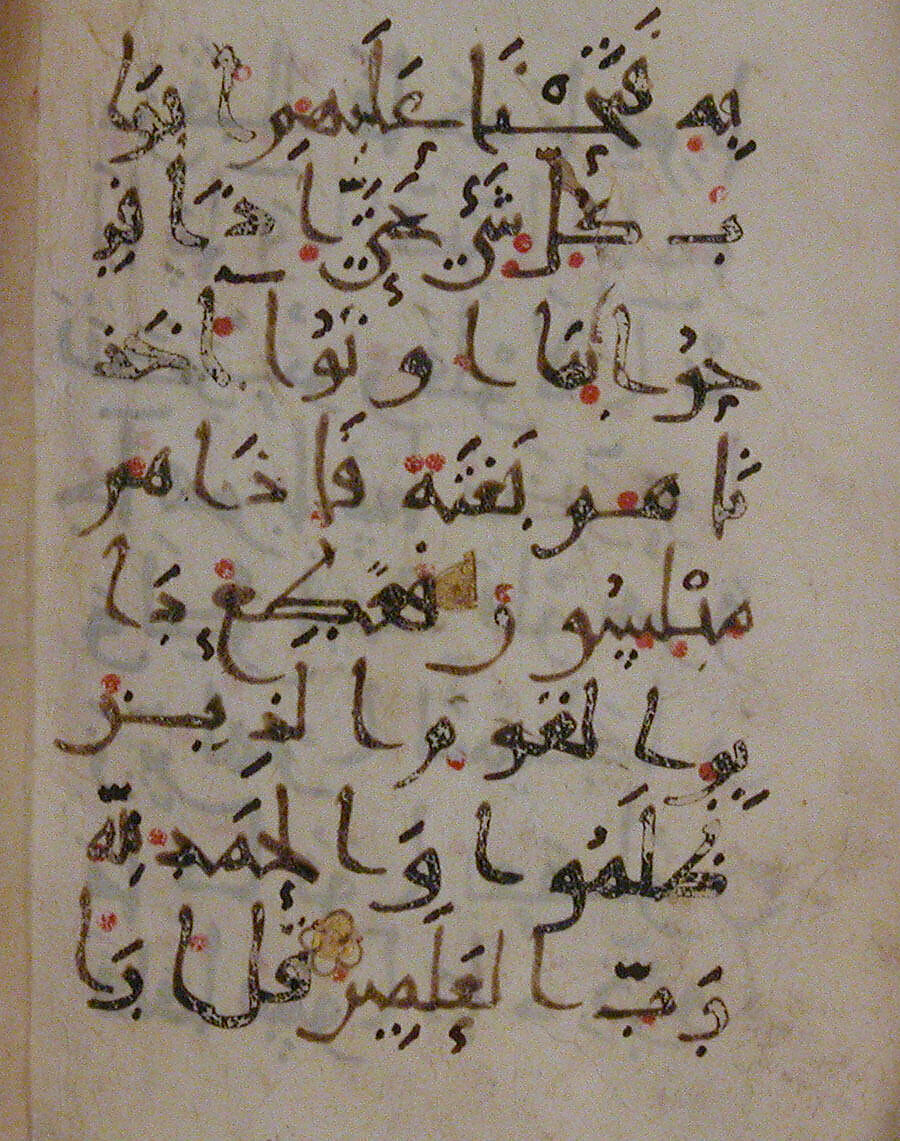 بِهِ فَتَحْنَا عَلَيْهِمْ أَبْوَا
بَ كُلِّ شَيْءٍ حَتَّىٰ إِذَا فَرِ
حُوا بِمَا أُوتُوا أَخَذْ
نَاهُم بَغْتَةً فَإِذَا هُم
مُبْلِسُونَ فَقُطِعَ دَا
بِرُ الْقَوْمِ الَّذِينَ
ظَلَمُوا وَالْحَمْدُ لِلَّهِ
رَبِّ الْعَلَمِينَ قُلْ أَرَا